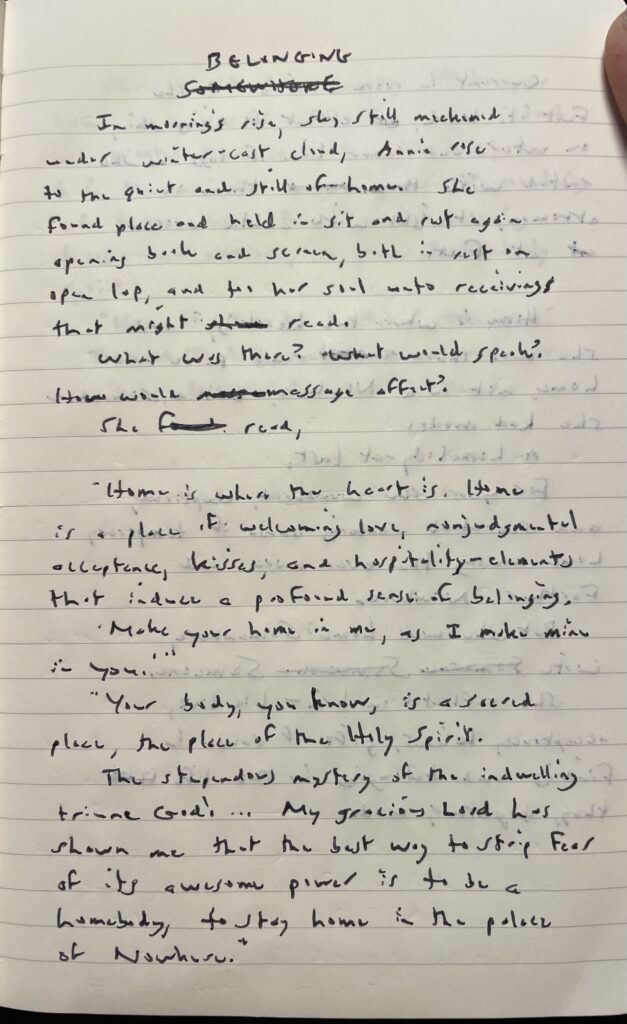 BELONGING
SOMEWHERE
In morning's rise, sky still
under winter-cast cloud, Annie rose
to the quiet and still of home. She
found place and held in sit and rest again
opening book and screen, both in rest on
open lap, and too her soul unto receivings
that might read.
What was there? What would speak?
How would message affect?
She read,
"Home is where the heart is. Home
is a place of welcoming love, nonjudgmental
acceptance, kisses, and hospitality-elements
that induce a profound sense of belonging.
'Make your home in me, as I make mine
in you.'"
"Your body, you know, is a sacred
place, the place of the Holy Spirit.
The stupendous mystery of the indwelling
triune God! ... My gracious Lord has
shown me that the best way to strip fear
of its awesome power is to be a
homebody, to stay home in the palace
of Nowhere."